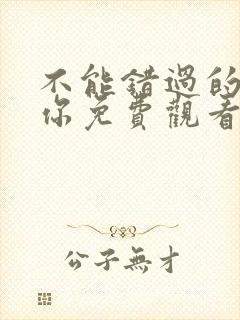 不能錯過的
你免費觀看
公子無才